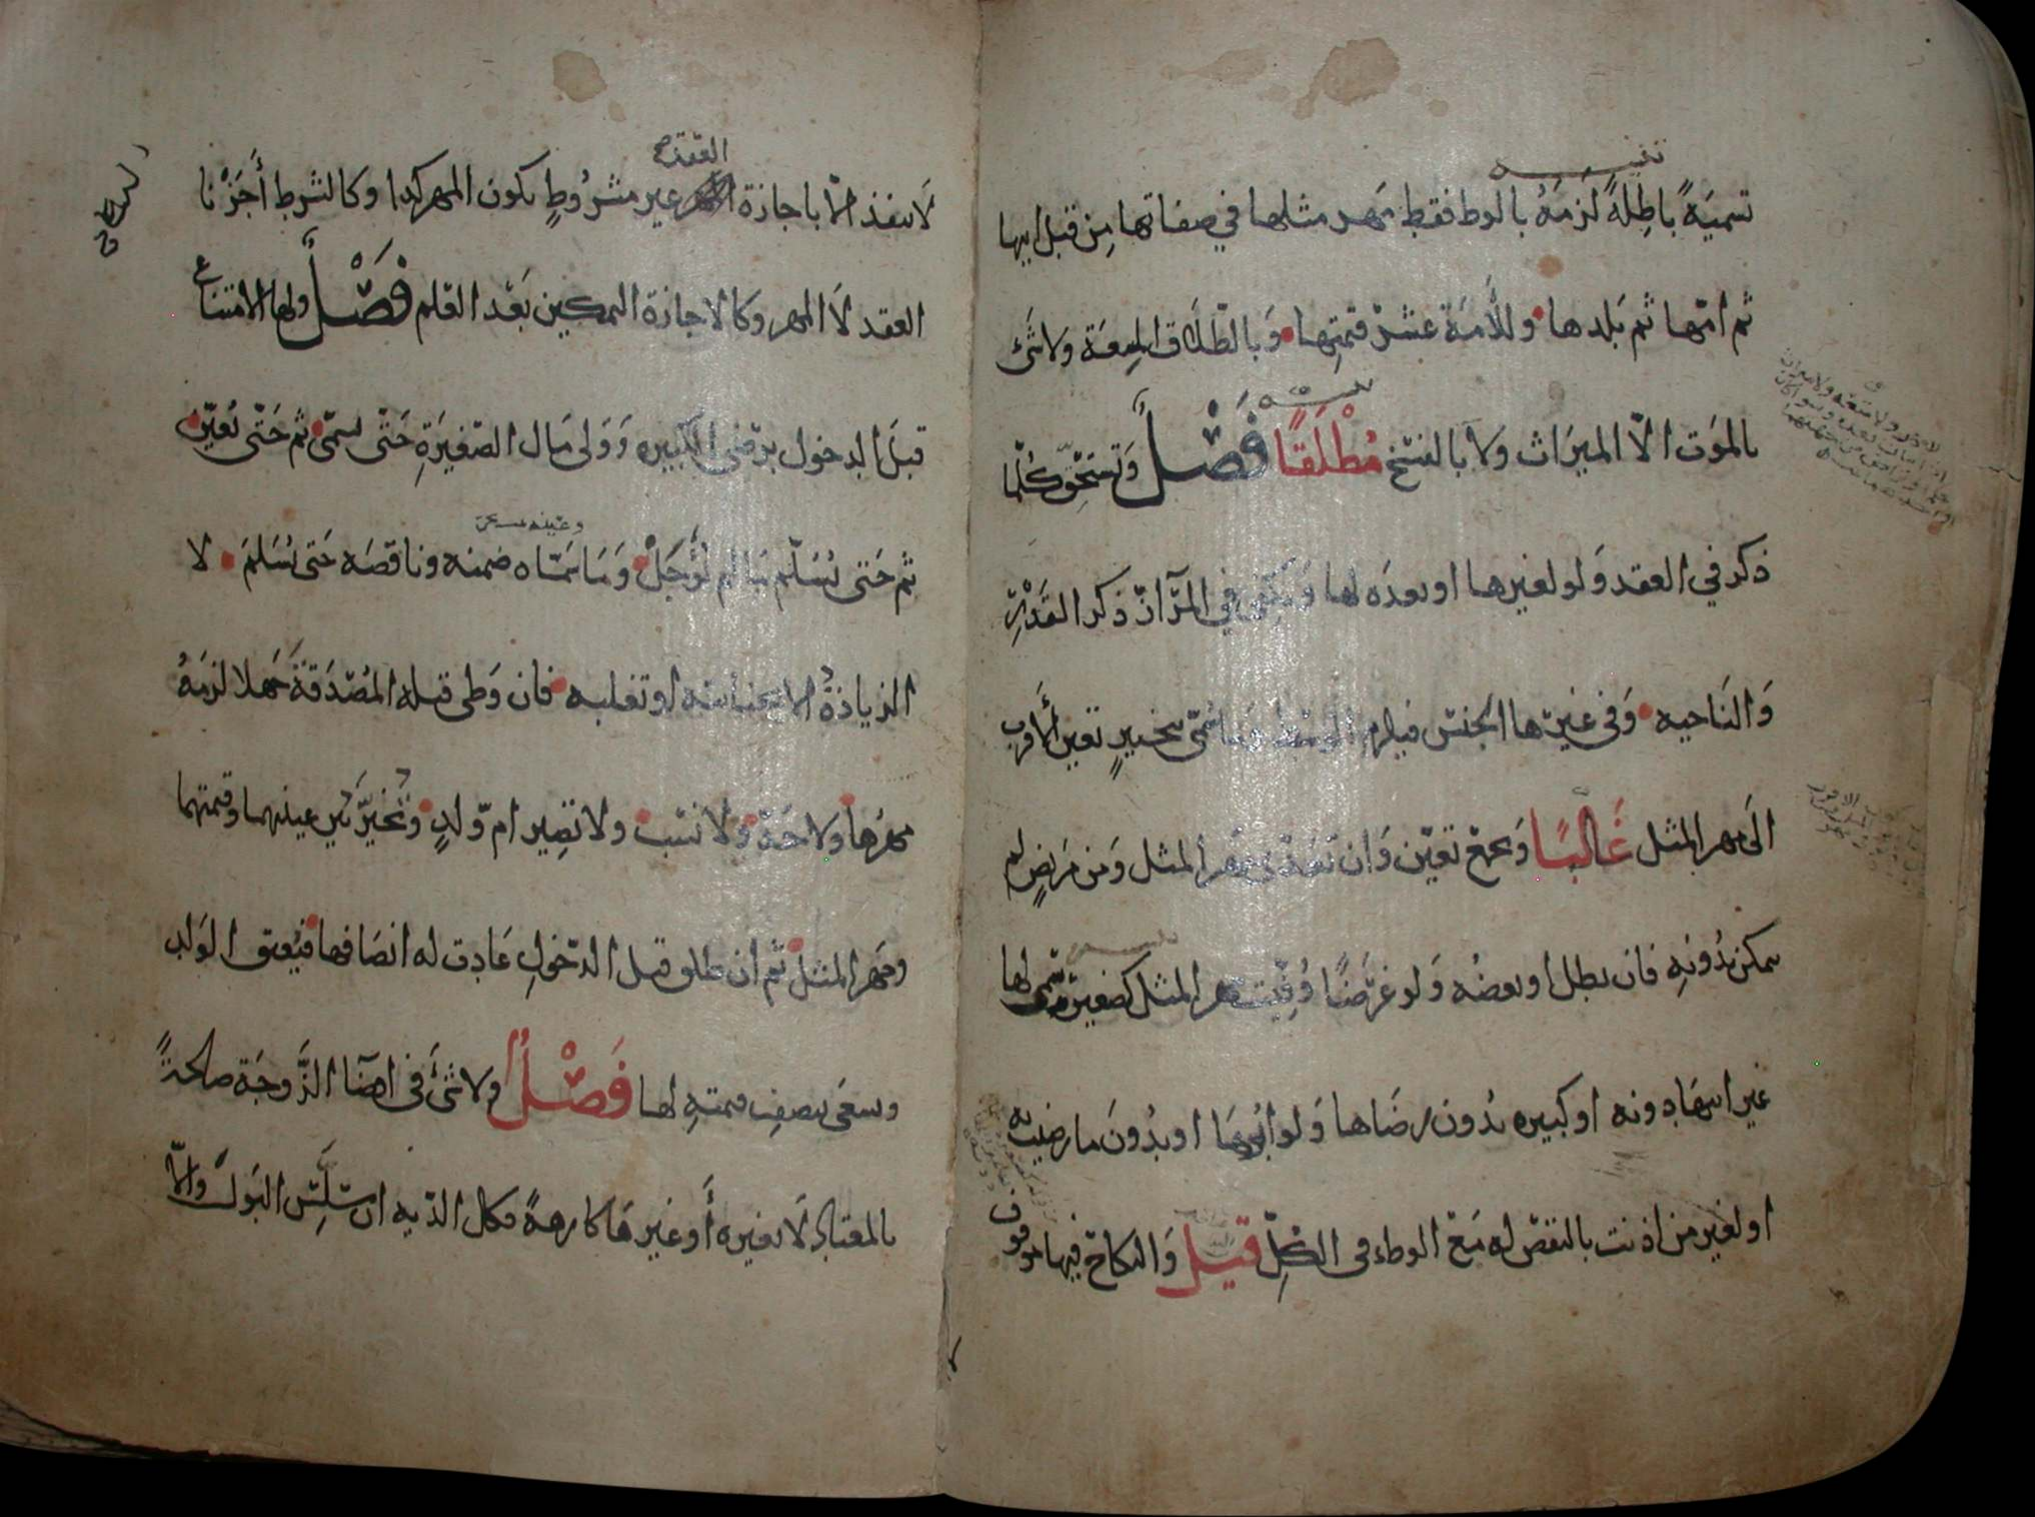 تسميَةً باطِلةً لَزمَهُ بالوط فقط مَهر مثلها في صفاتها مِن قبل ابيها
ثم امّها ثم بَلدها وللأَمَة عشرُ قيمتِها وَبالطّلاق المتعَة ولا شَئ
بالموَت الّا الميرَاث ولا بالفسْخ مُطْلَقًا فَصْلٌ وَتستحِقّ كُلّما
ذكر في العقد وَلو لغيرها او بعدَه لها وَيكفي في المرَآتّ ذكر القَدْر
وَالنَاحيه وَفي غيرّها الجنسْ فيلزم الوسَط وَما سُمّي بتخيير تعين الأَقرب
الَى مهر المثل غَالبًا وَبجمعْ تعيّن وَان تعدّى مَهر المثل وَمن مَريضٍ لم
يمكن بدُونهِ فان بطل او بعضُه وَلو غرَضًا وُفّيت مهر المثل كصَغيرة سمّى لها
غير ابيها دونه او كبيره بدُون رضَاها وَلو ابُوهَا او بدُونَ ما رضيت به
او لغير من اذنت بالنقصْ له مَع الوطء في الكُلّ قيل وَالنكاحّ فيها موقوف
العقد
لَا ينفذ الّا باجازة غير مشرُوطٍ بكون المهر كذا وكالشرط أَجَزْنا
العقد لاَ المهر وكالاجازة التمكين بَعْد العلم فَصْلٌ ولها الامتناع
قبلَ الدخول برضى الكبيره وَوَلى مَال الصّغيرَةِ حَتّى يسمّى ثم حَتّى يُعيّن
ثم حَتى يُسَلّم مَا لم يؤَجَلْ وَمَا سَمّاه ضمنه وناقصَه حَتى يُسَلمَ لا
الزيادَةُ الا بجنايته او تغلبه فان وَطى قبله المُصْدَقَة جَهلا لزمَهُ
مهرُها ولا حَدّ وَلا نسَب ولا تصِير ام وّلدٍ وَتُخيّر بَين عينهما وقيمتهما
ومَهر المثل ثم ان طلق قبل الدّخولِ عَادت له انصَافها فيُعتق الوَلد
وَيسعَى بنصف قيمتهِ لها فَصْلٌ ولا شَئَ في افضَا الزَّوجَة صالحةً
بالمعتادِ لَا بغيره أَو غيرهَا كارهةً فكل الدّيه ان سَلِسَ البَول وَالّا